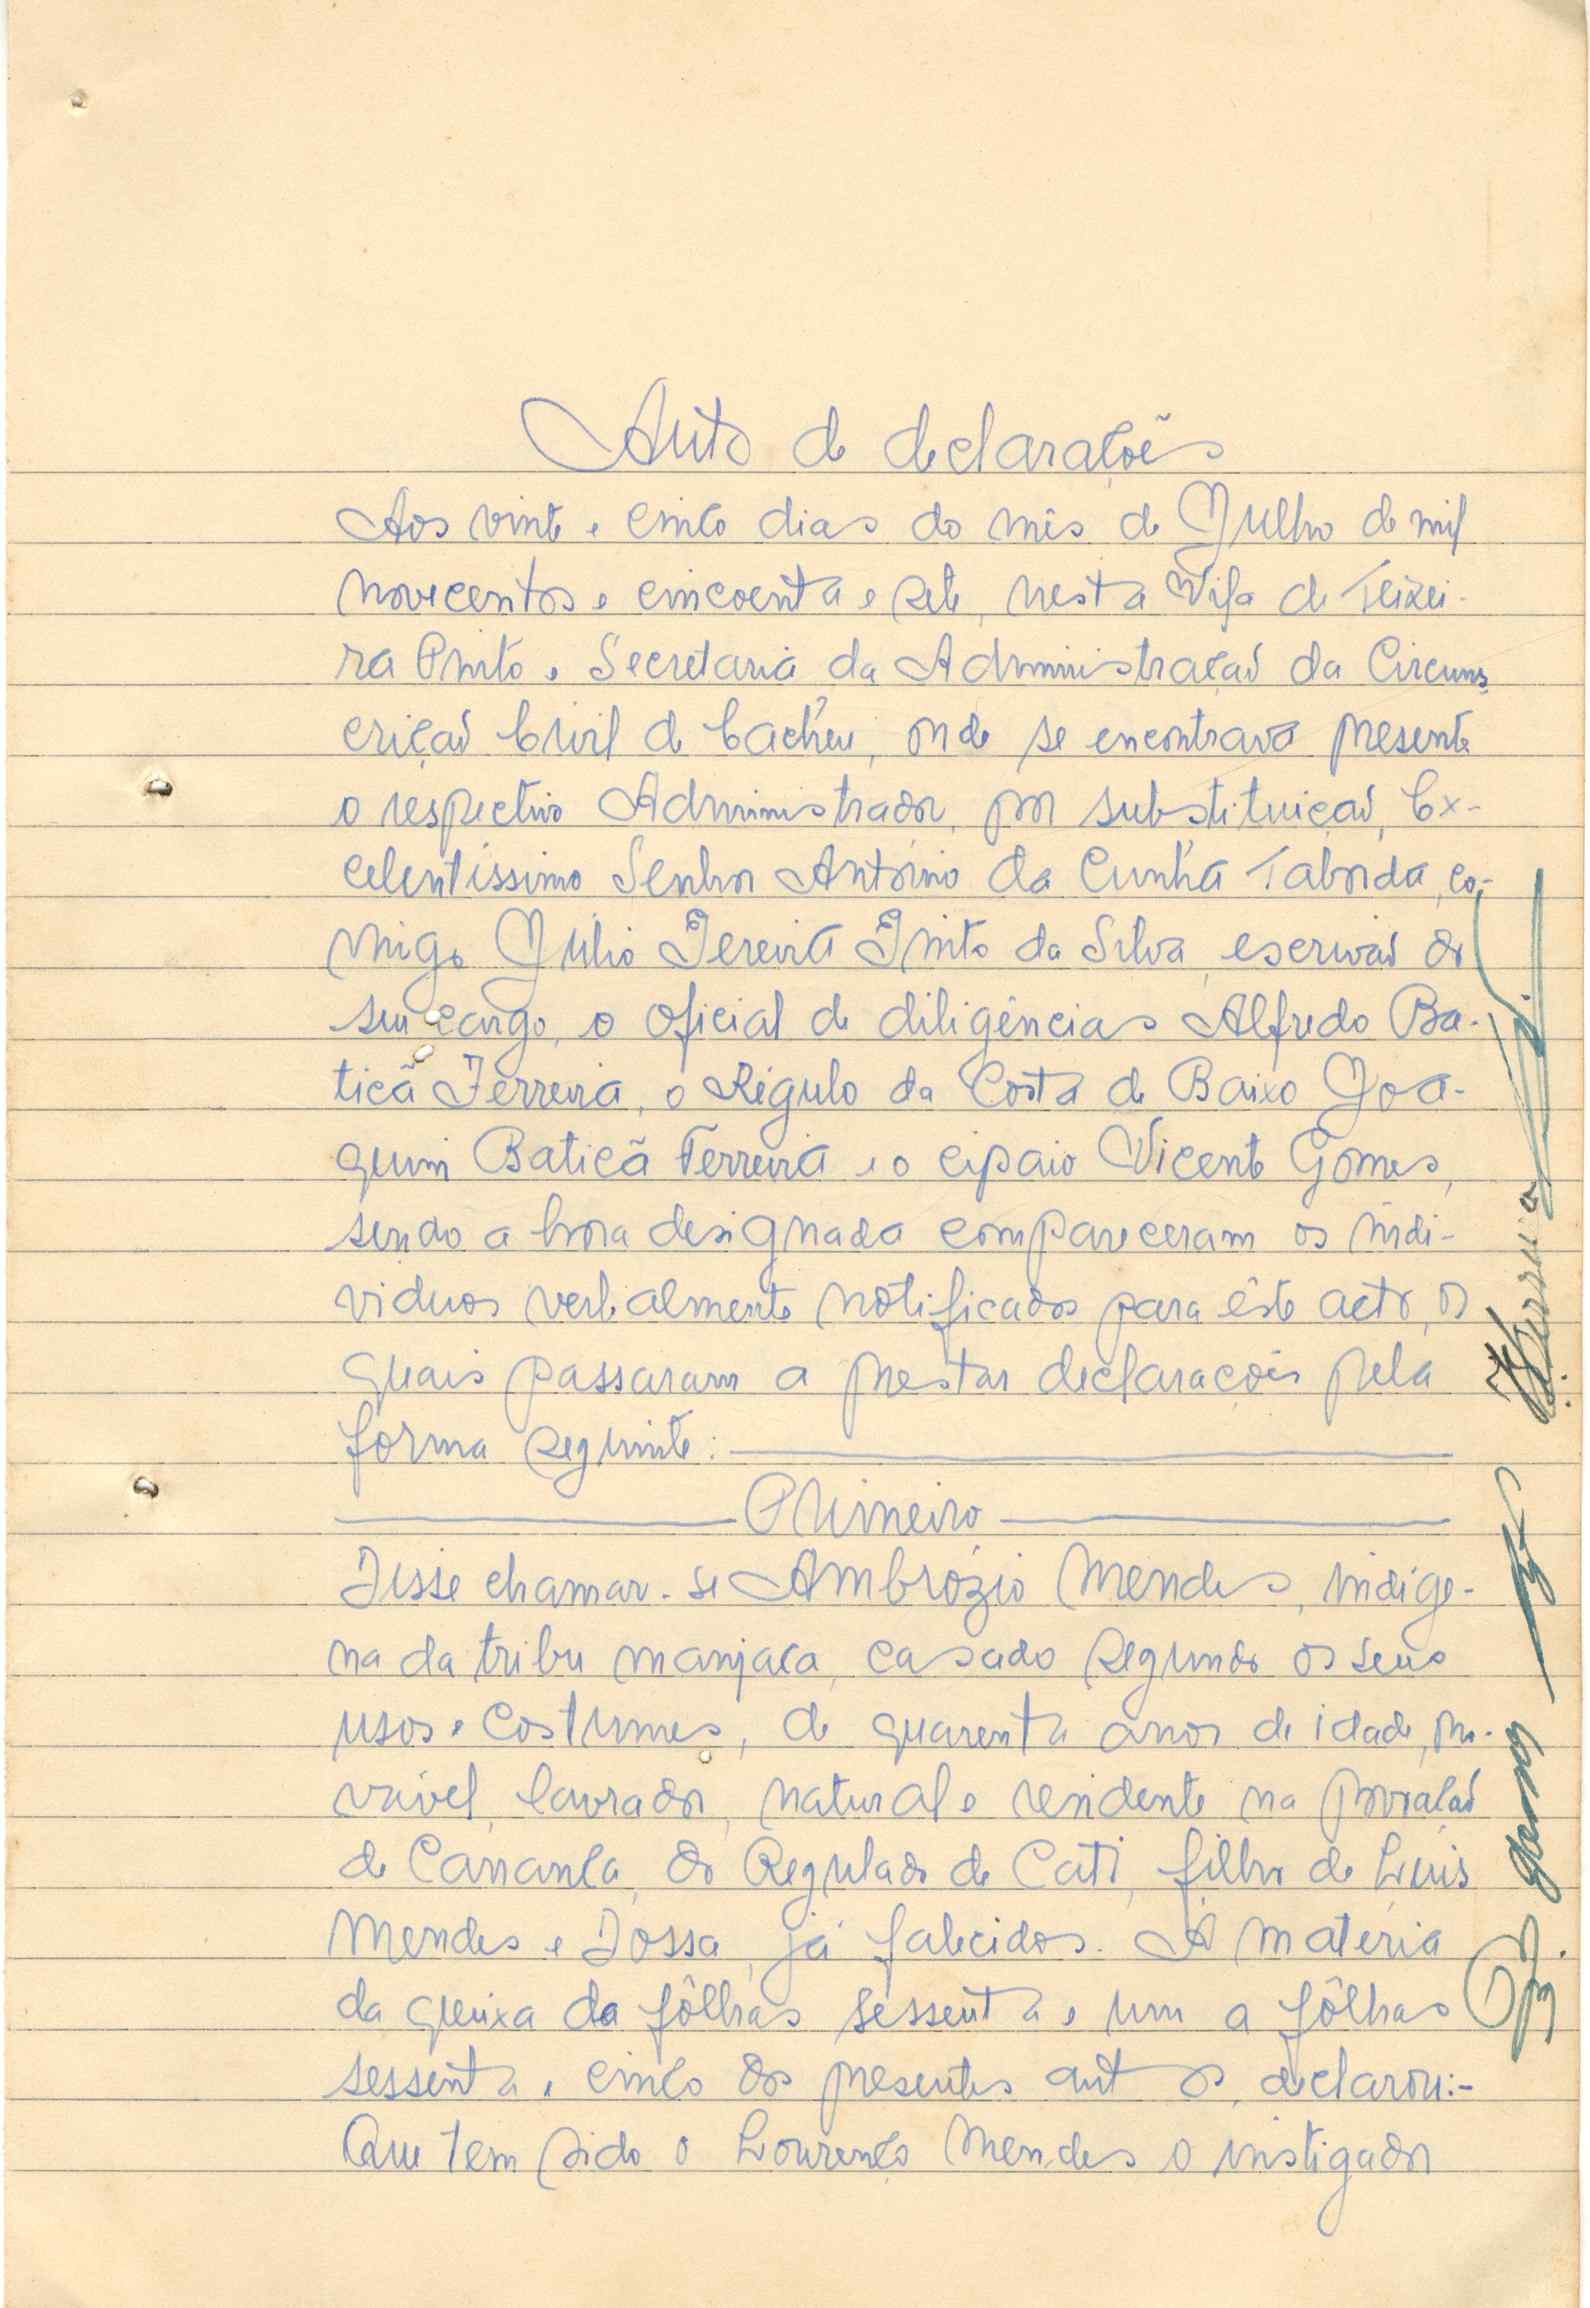 Auto de declarações
Aos vinte e cinco dias do mês de Julho de mil
novecentos e cincoenta e sete, nesta Vila de Teixei-
ra Pinto e Secretaria da Administração da Circuns
crição Civil de Cacheu, onde se encontrava presente
o respectivo Administrador, por substituição, Ex-
celentíssimo Senhor António da Cunha Taborda, co-
migo Júlio Pereira Pinto da Silva, escrivão do
seu cargo, o oficial de diligências Alfredo Ba-
ticã Ferreira, o Régulo da Costa de Baixo Joa-
quim Baticã Ferreira e o cipaio Vicente Gomes,
sendo a hora designada compareceram os indi-
viduos verbalmente notificados para êste acto, os
quais passaram a prestar declarações pela
forma seguinte:
Primeiro
Disse chamar-se Ambrózio Mendes, indige-
na da tribu manjaca, casado segundo os seus
usos e costumes, de quarenta anos de idade, pro-
vável, lavrador, natural e residente na povoação
de Cananca, do Regulado de Cati, filho de Luís
Mendes e Dossa, já falecidos. À matéria
da queixa da fôlhas sessenta e um a fôlhas
sessenta e cinco dos presentes autos, declarou:-
Que tem sido o Lourenço Mendes o instigador
Ferreira